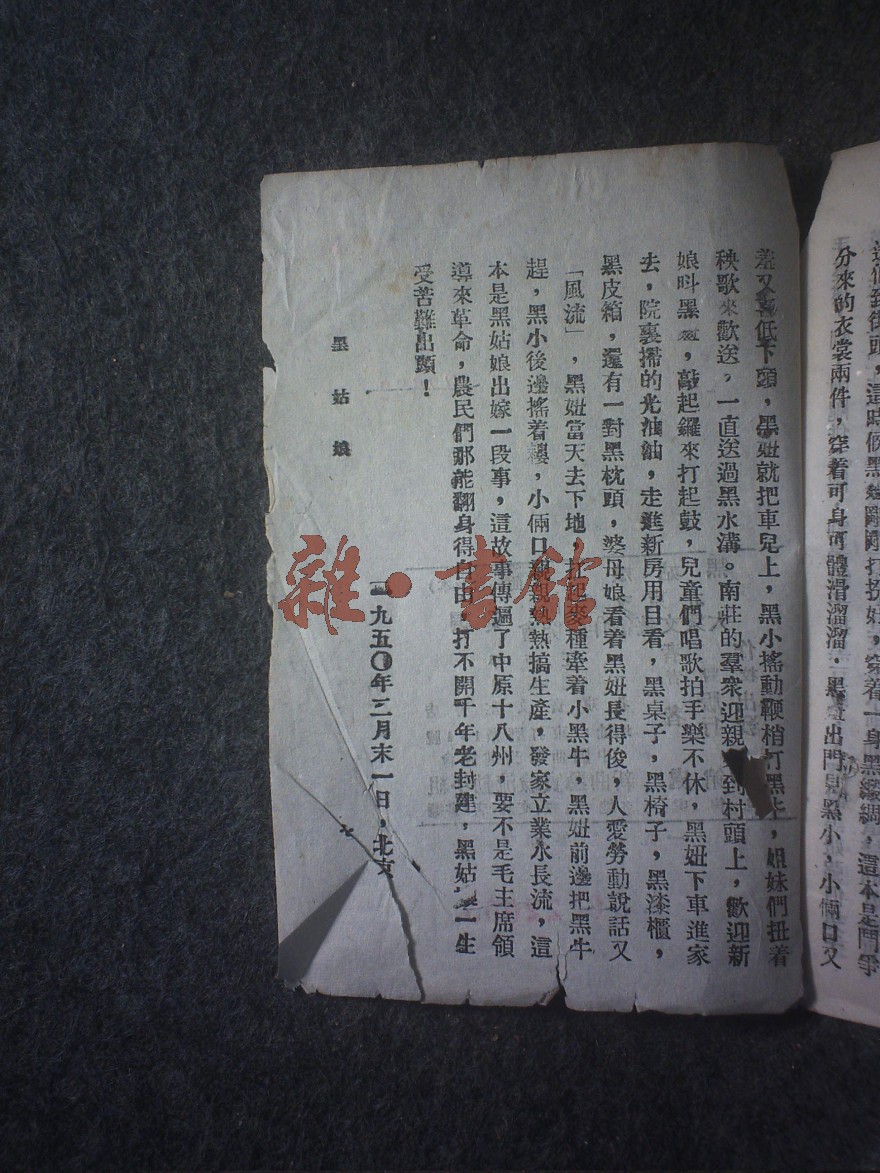 這時候黑妞剛剛打扮好，穿着一身黑縐綢，這本是鬥爭
分來的衣裳兩件，穿着可身可體滑溜溜。黑妞出門見黑小，小倆口又
羞又喜低下頭，黑妞就把車兒上，黑小搖動鞭梢打黑牛，姐妹們扭着
秧歌來歡送，一直送過黑水溝。南莊的羣衆迎親到村頭上，歡迎新
娘叫黑妞，敲起鑼來打起鼓，兒童們唱歌拍手樂不休，黑妞下車進家
去，院裏掃的光油油，走進新房用目看，黑桌子，黑椅子，黑漆櫃，
黑皮箱，還有一對黑枕頭，婆母娘看着黑妞長得俊，人愛勞動說話又
「風流」，黑妞當天去下地，扛起麥種牽着小黑牛，黑妞前邊把黑牛
趕，黑小後邊搖着耬，小倆口親親熱熱搞生產，發家立業水長流，這
本是黑姑娘出嫁一段事，這故事傳遍了中原十八州，要不是毛主席領
導來革命，農民們那能翻身得自由，打不開千年老封建，黑姑娘一生
受苦難出頭！
一九五〇年二月末一日，北京
黑姑娘
雜·書館